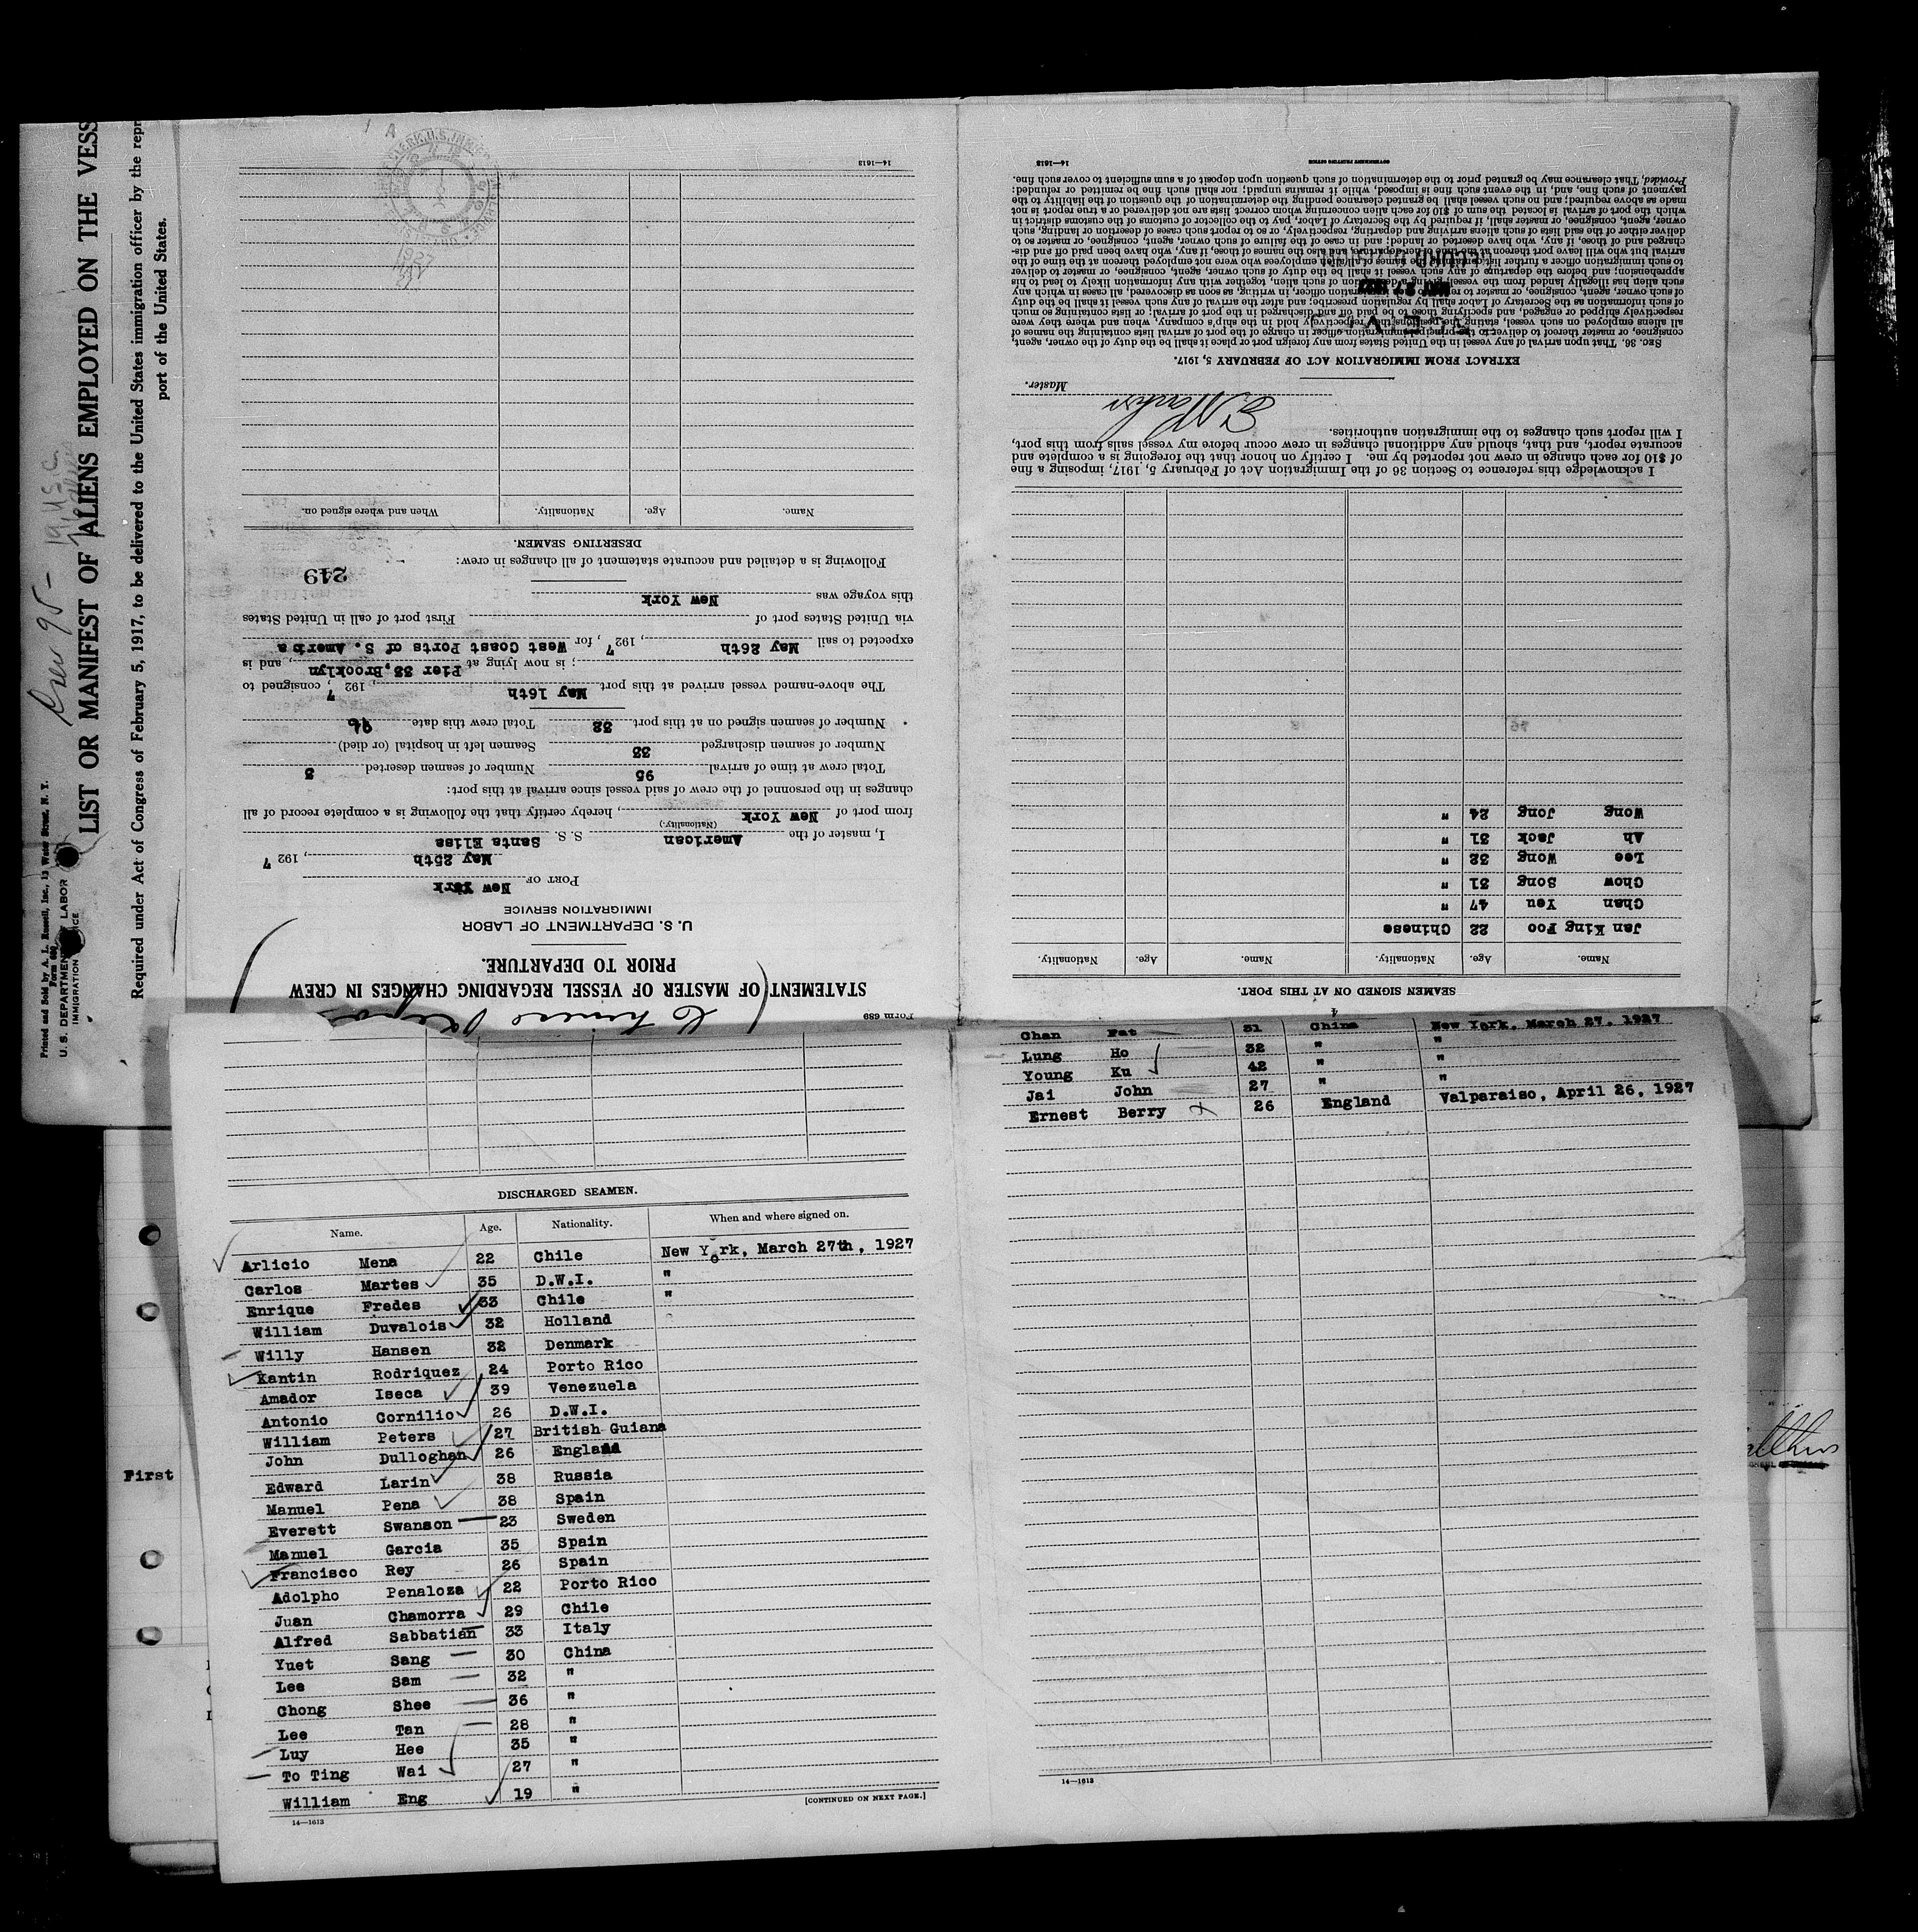 LIST OR MANIFEST OF ALIENS EMPLOYED ON THE VESS
Required under Act of Congress of February 5, 1917, to be delivered to the United States immigration officer by the repr
port of the United States.
Printed and Sold by A. L. Russell, Inc., 13 Water Street, N. Y.
Form 680
U. S. DEPARTMENT LABOR
IMMIGRATION
Crew 95 -
Form 689
STATEMENT OF MASTER OF VESSEL REGARDING CHANGES IN CREW
PRIOR TO DEPARTURE.
U. S. DEPARTMENT OF LABOR
IMMIGRATION SERVICE
PORT OF New York
May 25th, 192 7
I, master of the American S. S. Santa Elisa
(Nationality.)
from port of New York, hereby certify that the following is a complete record of all
changes in the personnel of the crew of said vessel since arrival at this port:
Total crew at time of arrival 95 Number of seamen deserted 3
Number of seamen discharged 33 Seamen left in hospital (or died)
Number of seamen signed on at this port 32 Total crew this date
The above-named vessel arrived at this port May 16th, 192 7, consigned to
; is now lying at Pier 33, Brooklyn, and is
expected to sail May 26th, 192 7, for West Coast Ports of S. America
via United States port of First port of call in United States
this voyage was New York
249
Following is a detailed and accurate statement of all changes in crew:
DESERTING SEAMEN.
Name. Age. Nationality. When and where signed on.
14—1613
SEAMEN SIGNED ON AT THIS PORT.
Name. Age. Nationality. Name. Age. Nationality.
Jan King Foo 22 Chinese
Chan Yeu 47 "
Chow Song 31 "
Lee Wong 32 "
Ah Jack 31 "
Wong Jong 24 "
I acknowledge this reference to Section 36 of the Immigration Act of February 5, 1917, imposing a fine
of $10 for each change in crew not reported by me. I certify on honor that the foregoing is a complete and
accurate report, and that, should any additional changes in crew occur before my vessel sails from this port,
I will report such changes to the immigration authorities.
Master.
EXTRACT FROM IMMIGRATION ACT OF FEBRUARY 5, 1917.
SEC. 36. That upon arrival of any vessel in the United States from any foreign port or place it shall be the duty of the owner, agent,
consignee, or master thereof to deliver to the principal immigration officer in charge of the port of arrival lists containing the names of
all aliens employed on such vessel, stating the positions they respectively hold in the ship's company, when and where they were
respectively shipped or engaged, and specifying those to be paid off and discharged in the port of arrival; or lists containing so much
of such information as the Secretary of Labor shall by regulation prescribe; and after the arrival of any such vessel it shall be the duty
of such owner, agent, consignee, or master to report to such immigration officer, in writing, as soon as discovered, all cases in which any
such alien has illegally landed from the vessel, giving a description of such alien, together with any information likely to lead to his
apprehension; and before the departure of any such vessel it shall be the duty of such owner, agent, consignee, or master to deliver
to such immigration officer a further list containing the names of all alien employees who were not employed thereon at the time of the
arrival but who will leave port thereon at the time of her departure, and also the names of those, if any, who have been paid off and dis-
charged and of those, if any, who have deserted or landed; and in case of the failure of such owner, agent, consignee, or master so to
deliver either of the said lists of such aliens arriving and departing, respectively, or so to report such cases of desertion or landing, such
owner, agent, consignee, or master shall, if required by the Secretary of Labor, pay to the collector of customs of the customs district in
which the port of arrival is located the sum of $10 for each alien concerning whom correct lists are not delivered or a true report is not
made as above required; and no such vessel shall be granted clearance pending the determination of the question of the liability to the
payment of such fine, and, in the event such fine is imposed, while it remains unpaid; nor shall such fine be remitted or refunded:
Provided, That clearance may be granted prior to the determination of such question upon deposit of a sum sufficient to cover such fine.
14—1613 GOVERNMENT PRINTING OFFICE
DISCHARGED SEAMEN.
Name. Age. Nationality. When and where signed on.
Arlicio Mena 22 Chile New York, March 27th, 1927
Carlos Martes 35 D.W.I. "
Enrique Fredes 33 Chile "
William Duvalois 32 Holland
Willy Hansen 32 Denmark
Kantin Rodriquez 24 Porto Rico
Amador Iseca 39 Venezuela
Antonio Cornilio 26 D.W.I.
William Peters 27 British Guiana
John Dulloghan 26 England
Edward Larin 38 Russia
Manuel Pena 38 Spain
Everett Swanson 23 Sweden
Manuel Garcia 35 Spain
Francisco Rey 26 Spain
Adolpho Penaloza 22 Porto Rico
Juan Chamorra 29 Chile
Alfred Sabbatian 33 Italy
Yuet Sang 30 China
Lee Sam 32 "
Chong Shee 36 "
Lee Tan 28 "
Luy Hee 35 "
To Ting Wai 27 "
William Eng 19 "
[CONTINUED ON NEXT PAGE.]
14—1613
Chan Fat 31 China New York, March 27, 1927
Lung Ho 32 " "
Young Ku 42 " "
Jai John 27 " "
Ernest Berry 26 England Valparaiso, April 26, 1927
14—1613
First